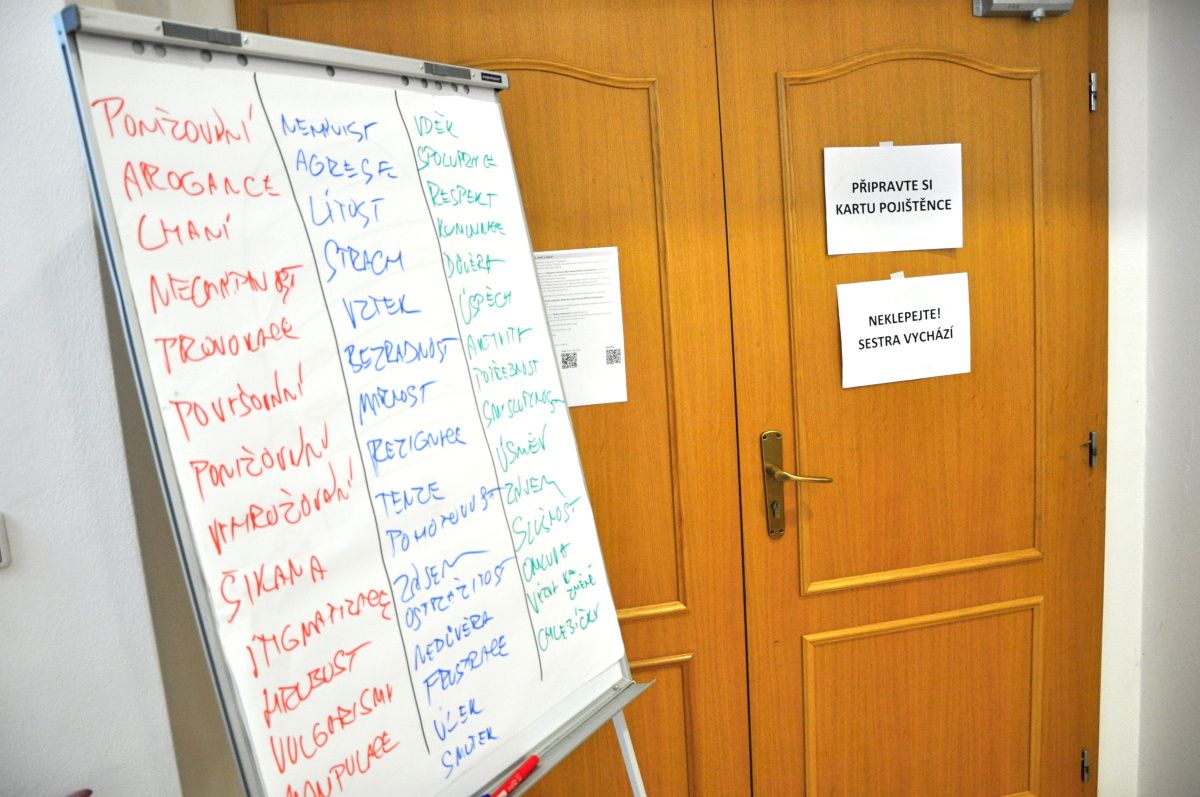 PONIŽOVÁNÍ
AROGANCE
LHANÍ
PROVOKACE
POVYŠOVÁNÍ
PONIŽOVÁNÍ
VYHROŽOVÁNÍ
ŠIKANA
STIGMATIZACE
HRUBOST
VULGARISMY
MANIPULACE
NENÁVIST
AGRESE
LÍTOST
STRACH
VZTEK
BEZRADNOST
REZIGNACE
TENZE
ZÁJEM
OSTRAŽITOST
NEDŮVĚRA
FRUSTRACE
ÚLEK
SMUTEK
VDĚK
SPOLUPRÁCE
RESPEKT
KOMUNIKACE
DŮVĚRA
ÚSPĚCH
AKTIVITA
POTŘEBNOST
ÚSMĚV
ZÁJEM
SLUŠNOST
OMLUVA
CHLEBÍČKY
PŘIPRAVTE SI
KARTU POJIŠTĚNCE
NEKLEPEJTE!
SESTRA VYCHÁZÍ